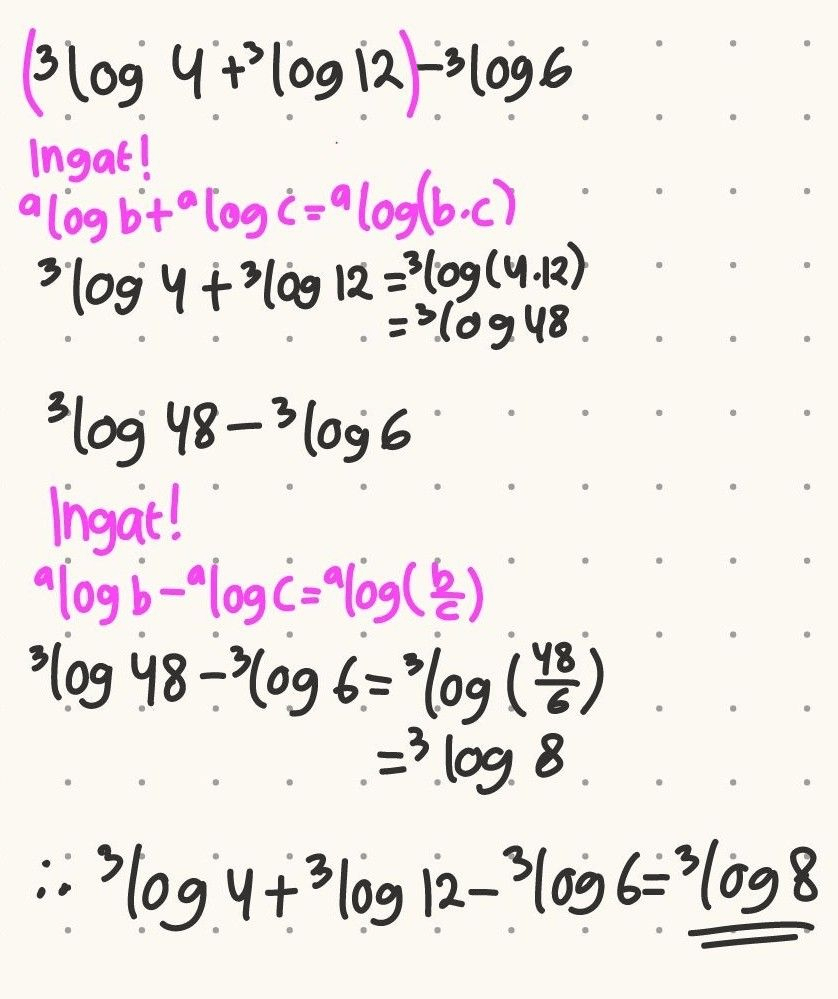 (³log 4 + ³log 12) - ³log 6
Ingat!
ᵃlog b + ᵃlog c = ᵃlog(b.c)
³log 4 + ³log 12 = ³log(4.12)
= ³log 48
³log 48 - ³log 6
Ingat!
ᵃlog b - ᵃlog c = ᵃlog(b/c)
³log 48 - ³log 6 = ³log (48/6)
= ³log 8
∴ ³log 4 + ³log 12 - ³log 6 = ³log 8